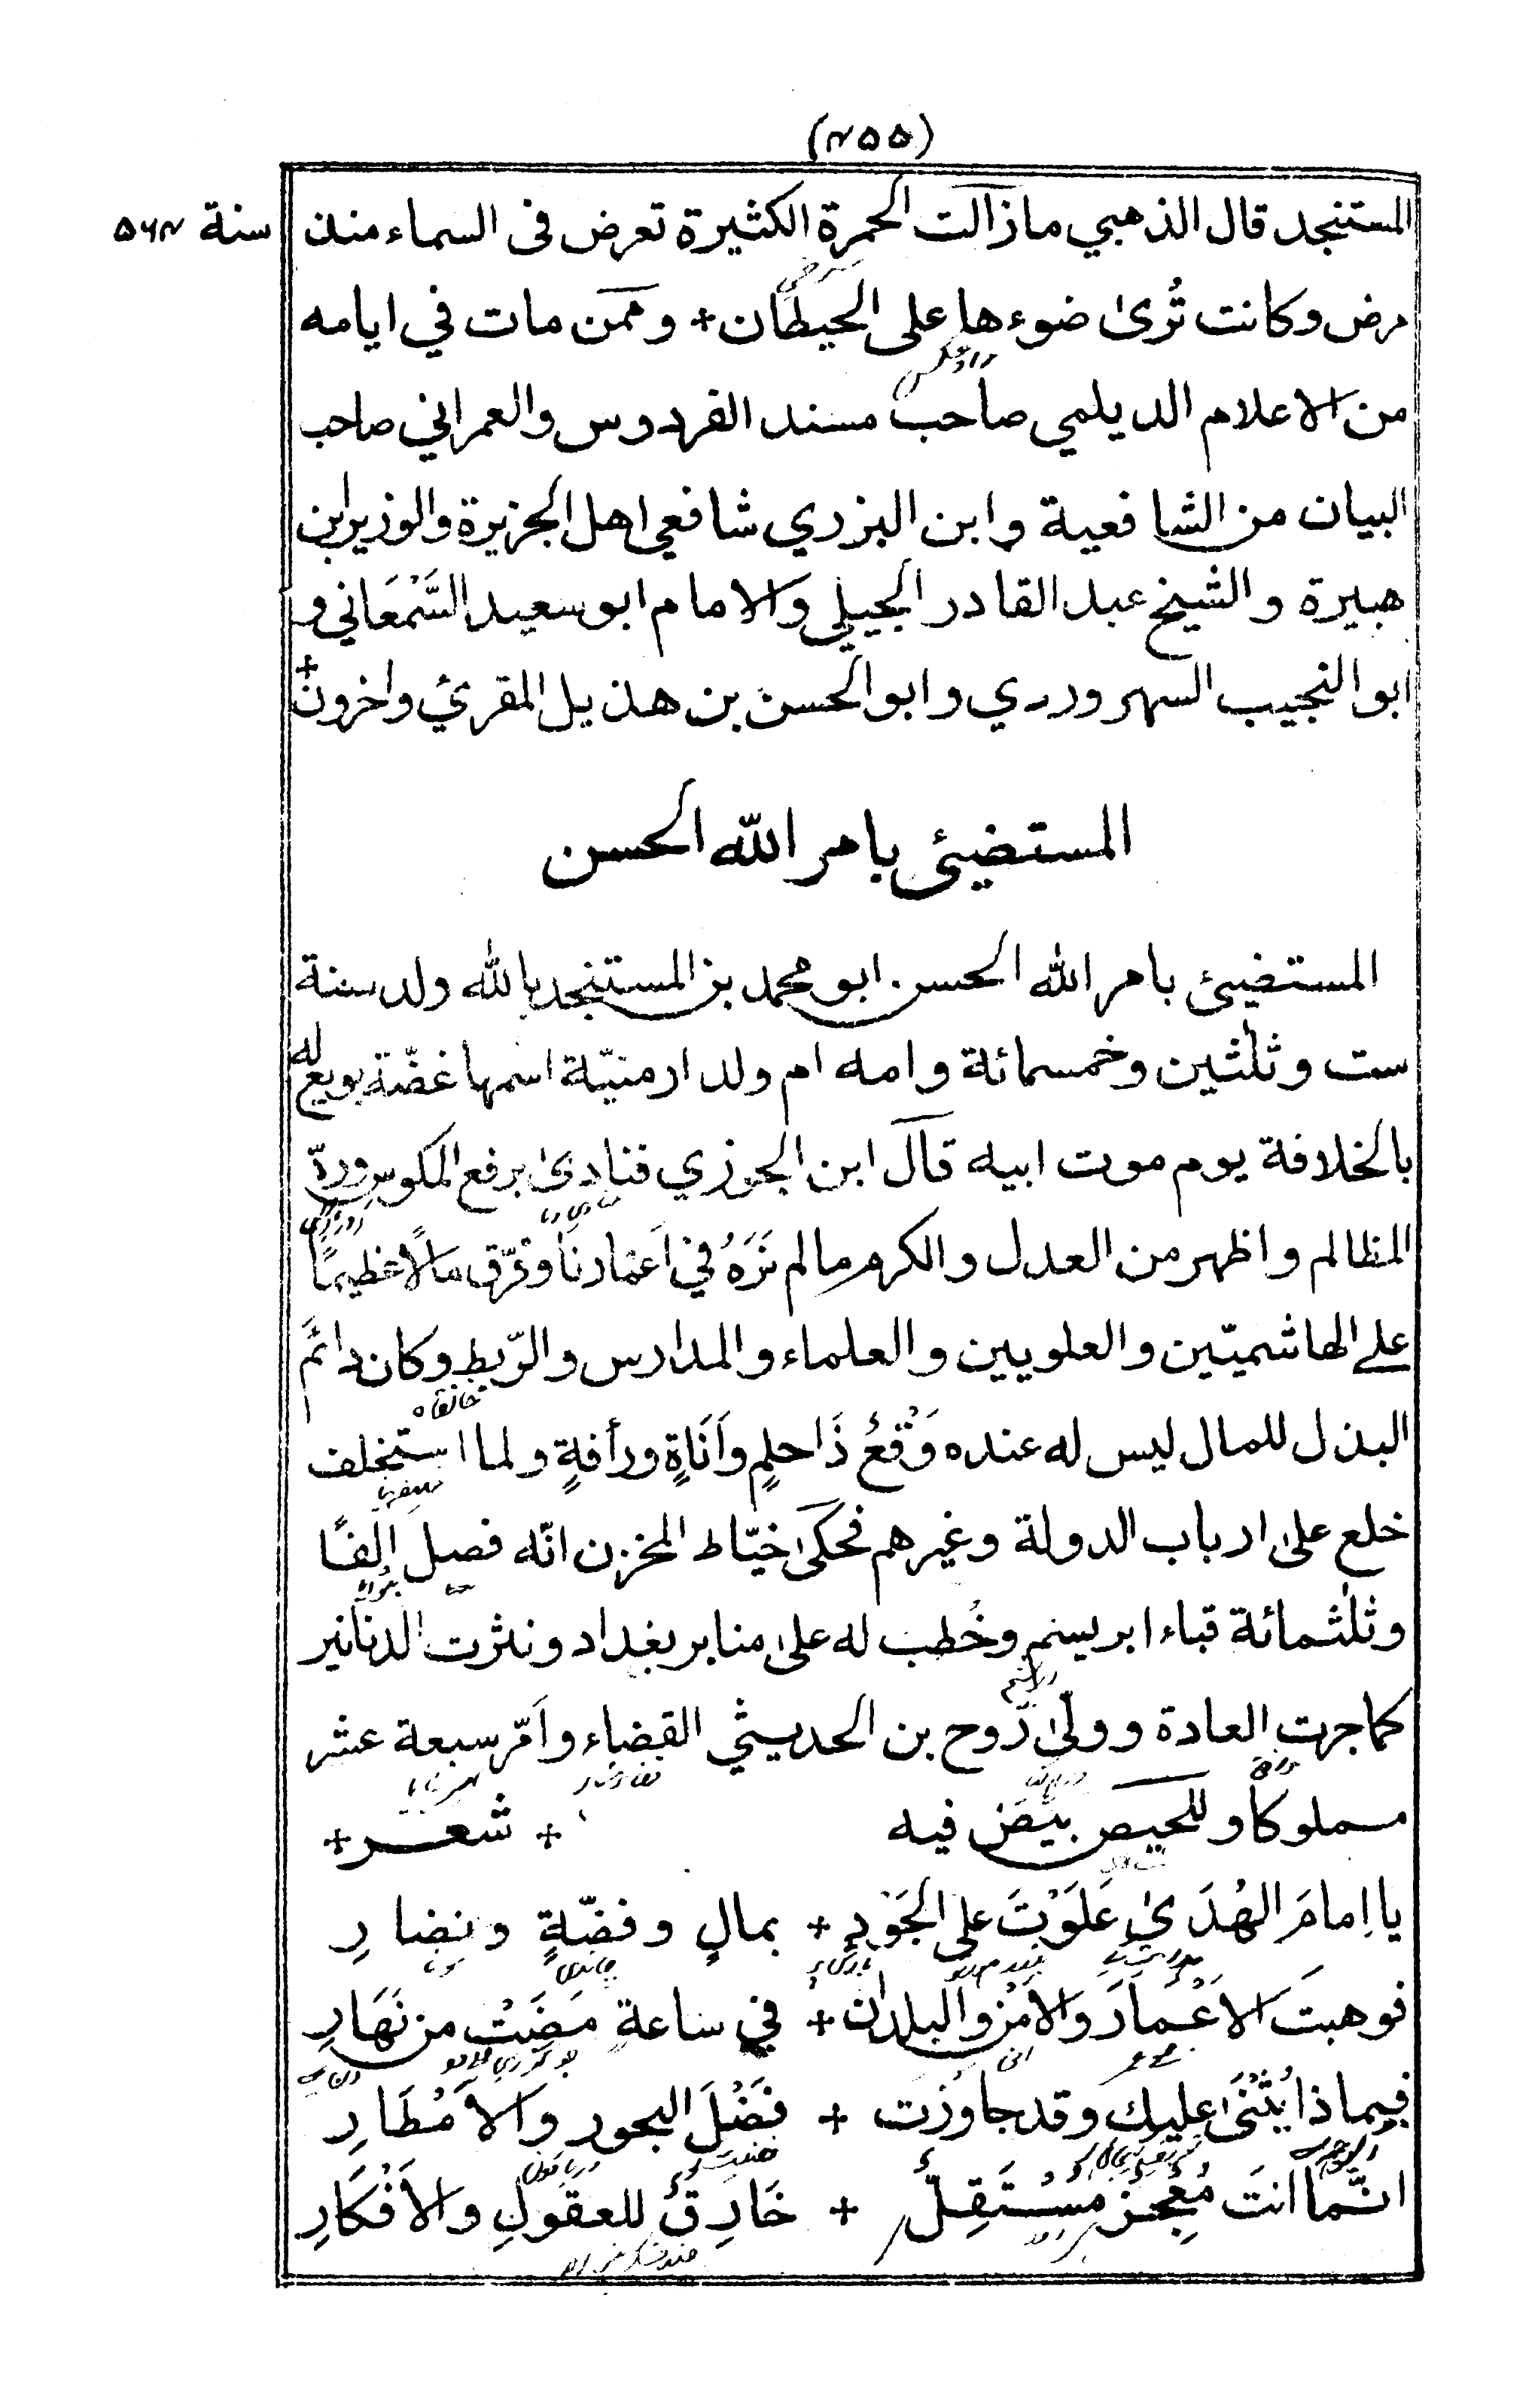 (۴۵۵)
المستنجد قال الذهبي مازالت الحمرة الكثيرة تعرض فى السماء منذ
سنة ۵۶۴
مرض وكانت تُرىٰ ضوءها على الحيطان + وممن مات في ايامه
من الاعلام الديلمي صاحب مسند الفردوس والعمراني صاحب
البيان من الشافعية وابن البزري شافعي اهل الجزيرة والوزير ابن
هبيرة والشيخ عبد القادر الجيلي والامام ابو سعيد السَّمْعَاني و
ابو النجيب السهروردي وابو الحسن بن هذيل المقرئ واخرون +
المستضيئ بامر الله الحسن
المستضيئ بامر الله الحسن ابو محمد بن المستنجد بالله ولد سنة
ست وثلٰثين وخمسمائة وامه ام ولد ارمنيّة اسمها غضّة بويع له
بالخلافة يوم موت ابيه قال ابن الجوزي فنادىٰ برفع المكوس وردّ
المظالم واظهر من العدل والكرم مالم نَرَهُ في اَعْمارنا وفرّق مالًا عظيمًا
على الهاشميّين والعلويين والعلماء والمدارس والرّبط وكان دائم
خانقاه
البذل للمال ليس له عنده وَقْعُ ذَا حلمٍ واَنَاةٍ ورأفةٍ ولما استخلف
خلع علىٰ ارباب الدولة وغيرهم فحكىٰ خيّاط المخزن انّه فصل الفًا
وثلٰثمائة قباء ابريسم وخُطب له علىٰ منابر بغداد ونثرت الدنانير
كما جرت العادة وولّىٰ رَوح بن الحديثي القضاء واَمّر سبعة عشر
مملوكا وللحيص بيص فيه + شعر +
يا اِمامَ الهُدَىٰ عَلَوْتَ على الجَوْدِ + بمالٍ وفضّةٍ ونضارِ
چاندی
فوهبتَ الاَعْمَارَ والاَمْن والبلدان + في ساعةٍ مَضَتْ من نَهَارِ
فبماذا يُثْنَىٰ عليك وقد جاوَزْت + فَضْلَ البحور والاَمْطَارِ
انّما انتَ مُعْجِزٌ مسْتَقِلٌّ + خَارِقٌ للعقولِ والاَفْكَارِ